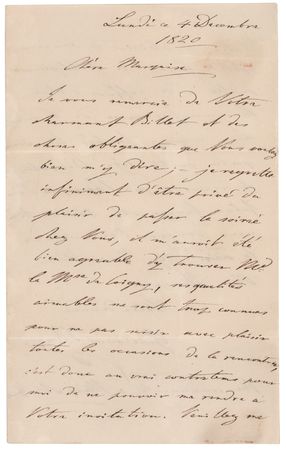 Lundi ce 4 Decembre
1820
Chère Marquise
Je vous remercie de Votre
charmant Billet et des
choses obligeantes que Vous voulez
bien m'y dire; je regrette
infiniment d'être privé du
plaisir de passer la soirée
chez Vous, il m'auroit été
bien agreable d'y trouver Md
la Mse de Coigny, ses qualités
aimables me sont trop connues
pour ne pas saisir avec plaisir
toutes les occasions de la rencontrer,
c'est donc un vrai contretems pour
moi de ne pouvoir me rendre a
Votre invitation. Veuillez me